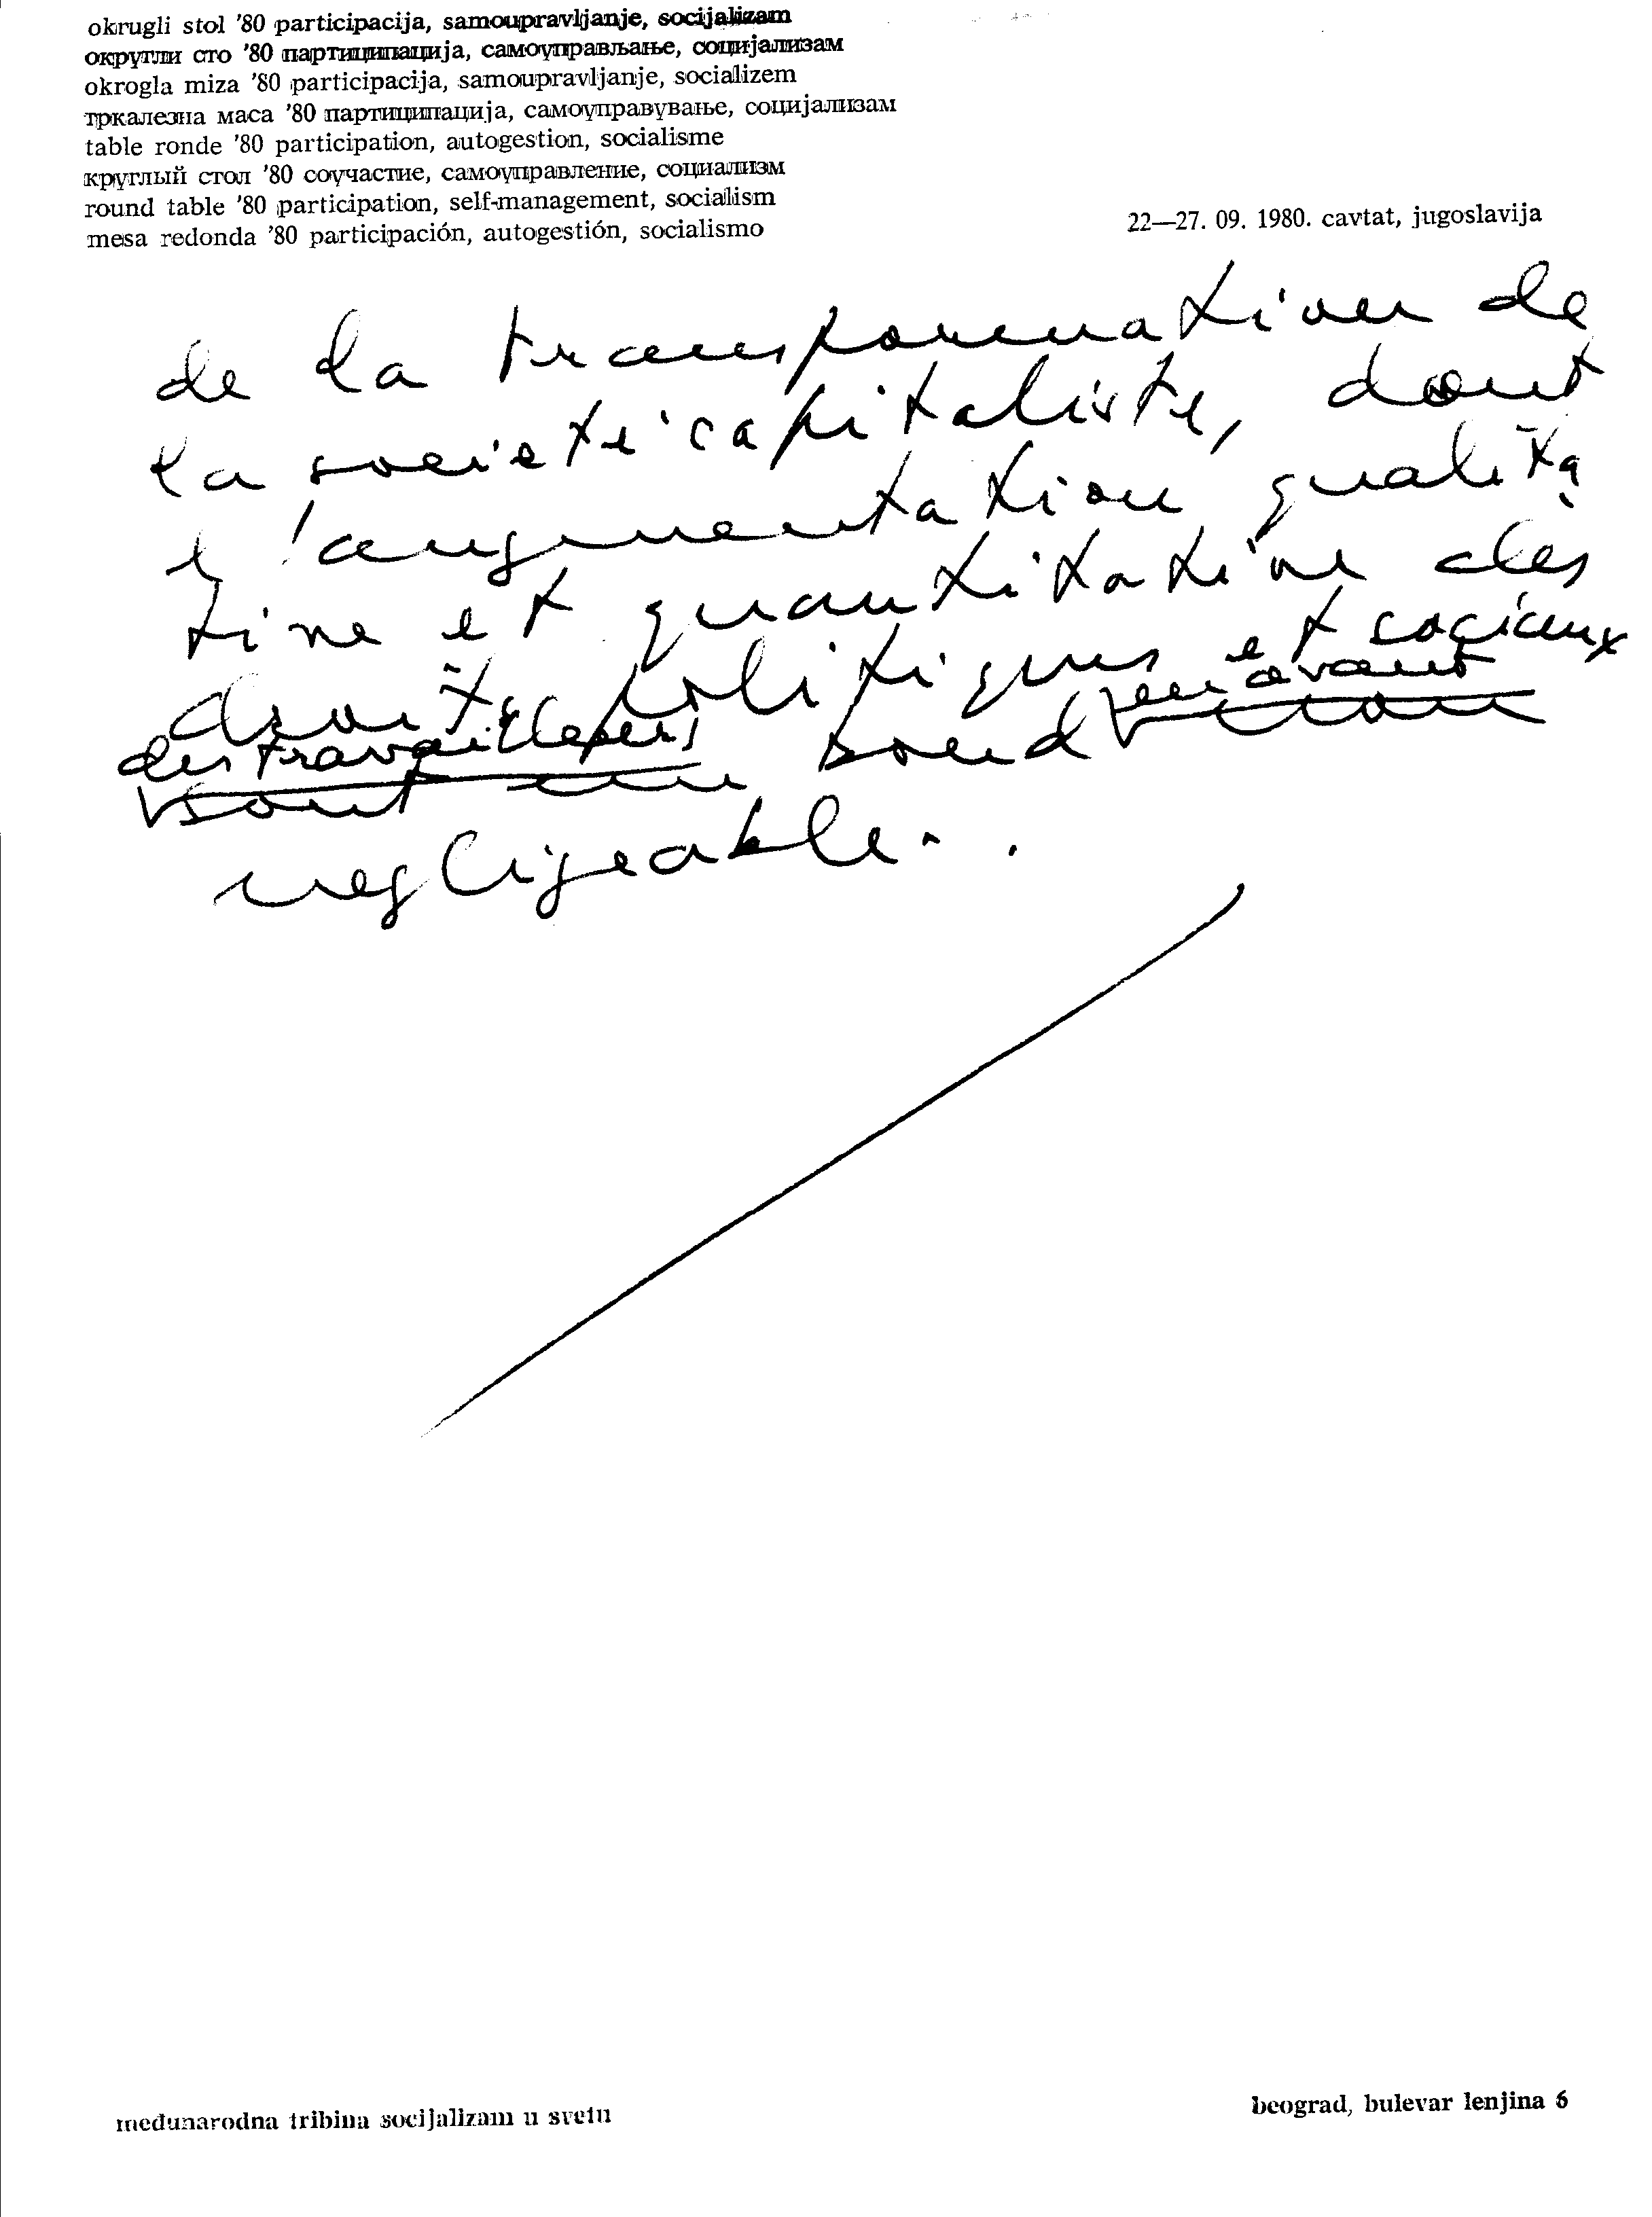 okrugli stol '80 participacija, samoupravljanje, socijalizam
округли сто '80 партиципација, самоуправљање, социјализам
okrogla miza '80 participacija, samoupravljanje, socializem
тркалезна маса '80 партиципација, самоуправување, социјализам
table ronde '80 participation, autogestion, socialisme
круглый стол '80 соучастие, самоуправление, социализм
round table '80 participation, self-management, socialism
mesa redonda '80 participación, autogestión, socialismo
22—27. 09. 1980. cavtat, jugoslavija
de la transformation de
la societé capitaliste, dont
l'augmentation qualita
tive et quantitative des
droits politiques et sociaux
des travailleurs en avant
sont un bond non
negligeable.
međunarodna tribina socijalizam u svetu
beograd, bulevar lenjina 6